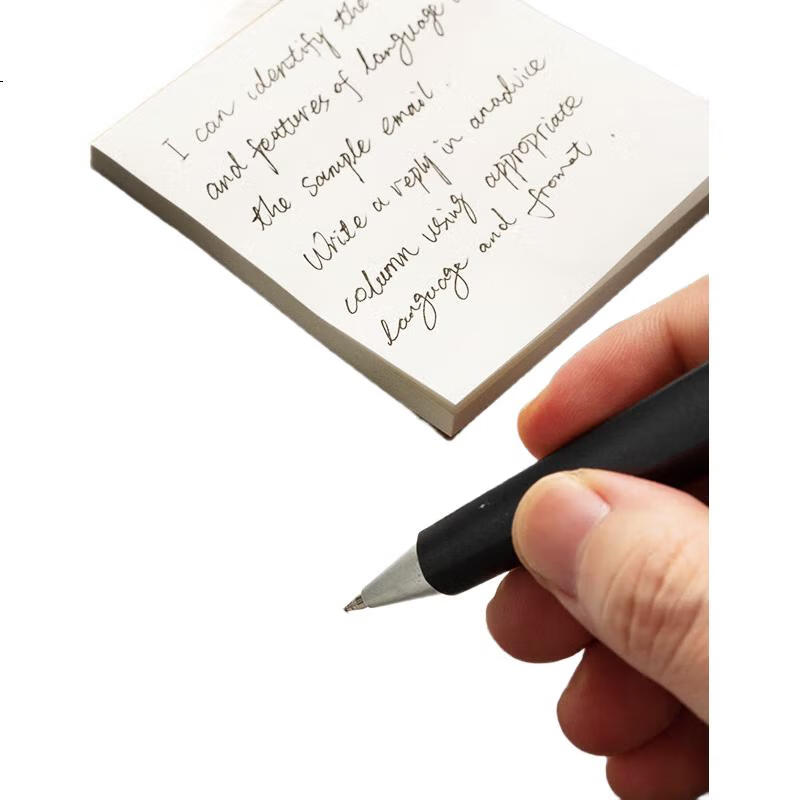 I can identify the
and features of language
the sample email.
Write a reply in anadvice
column using appropriate
language and fromat.